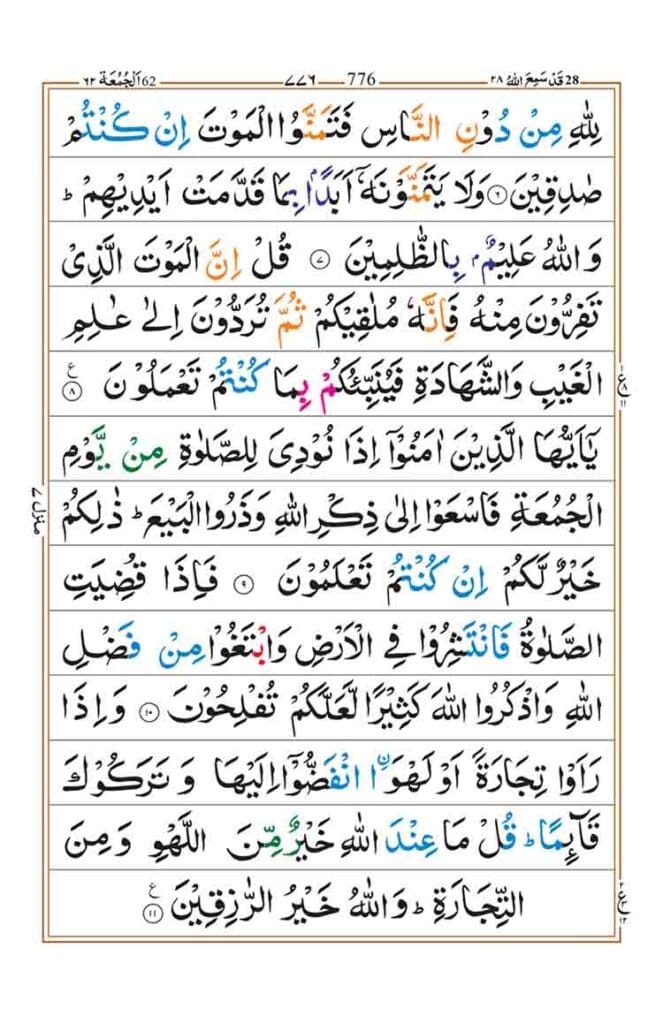 28 قَدْ سَمِعَ اللّٰهُ ٢٨ 776 ٧٧٦ 62 اَلْجُمُعَة ٦٢
لِلّٰهِ مِنْ دُوْنِ النَّاسِ فَتَمَنَّوُا الْمَوْتَ اِنْ كُنْتُمْ
صٰدِقِيْنَ ۶ وَلَا يَتَمَنَّوْنَهٗۤ اَبَدًۢا بِمَا قَدَّمَتْ اَيْدِيْهِمْ ؕ
وَاللّٰهُ عَلِيْمٌۢ بِالظّٰلِمِيْنَ ۷ قُلْ اِنَّ الْمَوْتَ الَّذِىْ
تَفِرُّوْنَ مِنْهُ فَاِنَّهٗ مُلٰقِيْكُمْ ثُمَّ تُرَدُّوْنَ اِلٰى عٰلِمِ
الْغَيْبِ وَالشَّهَادَةِ فَيُنَبِّئُكُمْ بِمَا كُنْتُمْ تَعْمَلُوْنَ ۸ ع
يٰۤاَيُّهَا الَّذِيْنَ اٰمَنُوْۤا اِذَا نُوْدِىَ لِلصَّلٰوةِ مِنْ يَّوْمِ
الْجُمُعَةِ فَاسْعَوْا اِلٰى ذِكْرِ اللّٰهِ وَذَرُوا الْبَيْعَ ؕ ذٰلِكُمْ
منزل ۷
خَيْرٌ لَّكُمْ اِنْ كُنْتُمْ تَعْلَمُوْنَ ۹ فَاِذَا قُضِيَتِ
الصَّلٰوةُ فَانْتَشِرُوْا فِى الْاَرْضِ وَابْتَغُوْا مِنْ فَضْلِ
اللّٰهِ وَاذْكُرُوا اللّٰهَ كَثِيْرًا لَّعَلَّكُمْ تُفْلِحُوْنَ ۱۰ وَاِذَا
رَاَوْا تِجَارَةً اَوْ لَهْوَا۟ ۨانْفَضُّوْۤا اِلَيْهَا وَتَرَكُوْكَ
قَآئِمًا ؕ قُلْ مَا عِنْدَ اللّٰهِ خَيْرٌ مِّنَ اللَّهْوِ وَمِنَ
التِّجَارَةِ ؕ وَاللّٰهُ خَيْرُ الرّٰزِقِيْنَ ۱۱ ع